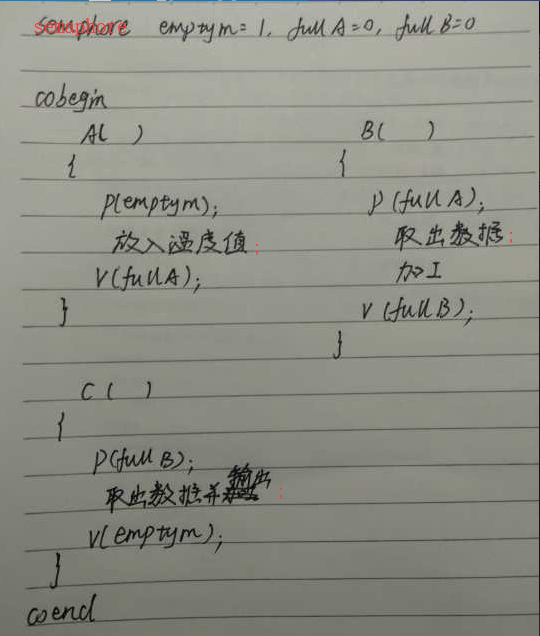 semaphore emptym=1, fullA=0, fullB=0
cobegin
A( )
{
P(emptym);
放入温度值;
V(fullA);
}
B( )
{
P(fullA);
取出数据;
加工
V(fullB);
}
C( )
{
P(fullB);
取出数据并输出;
V(emptym);
}
coend